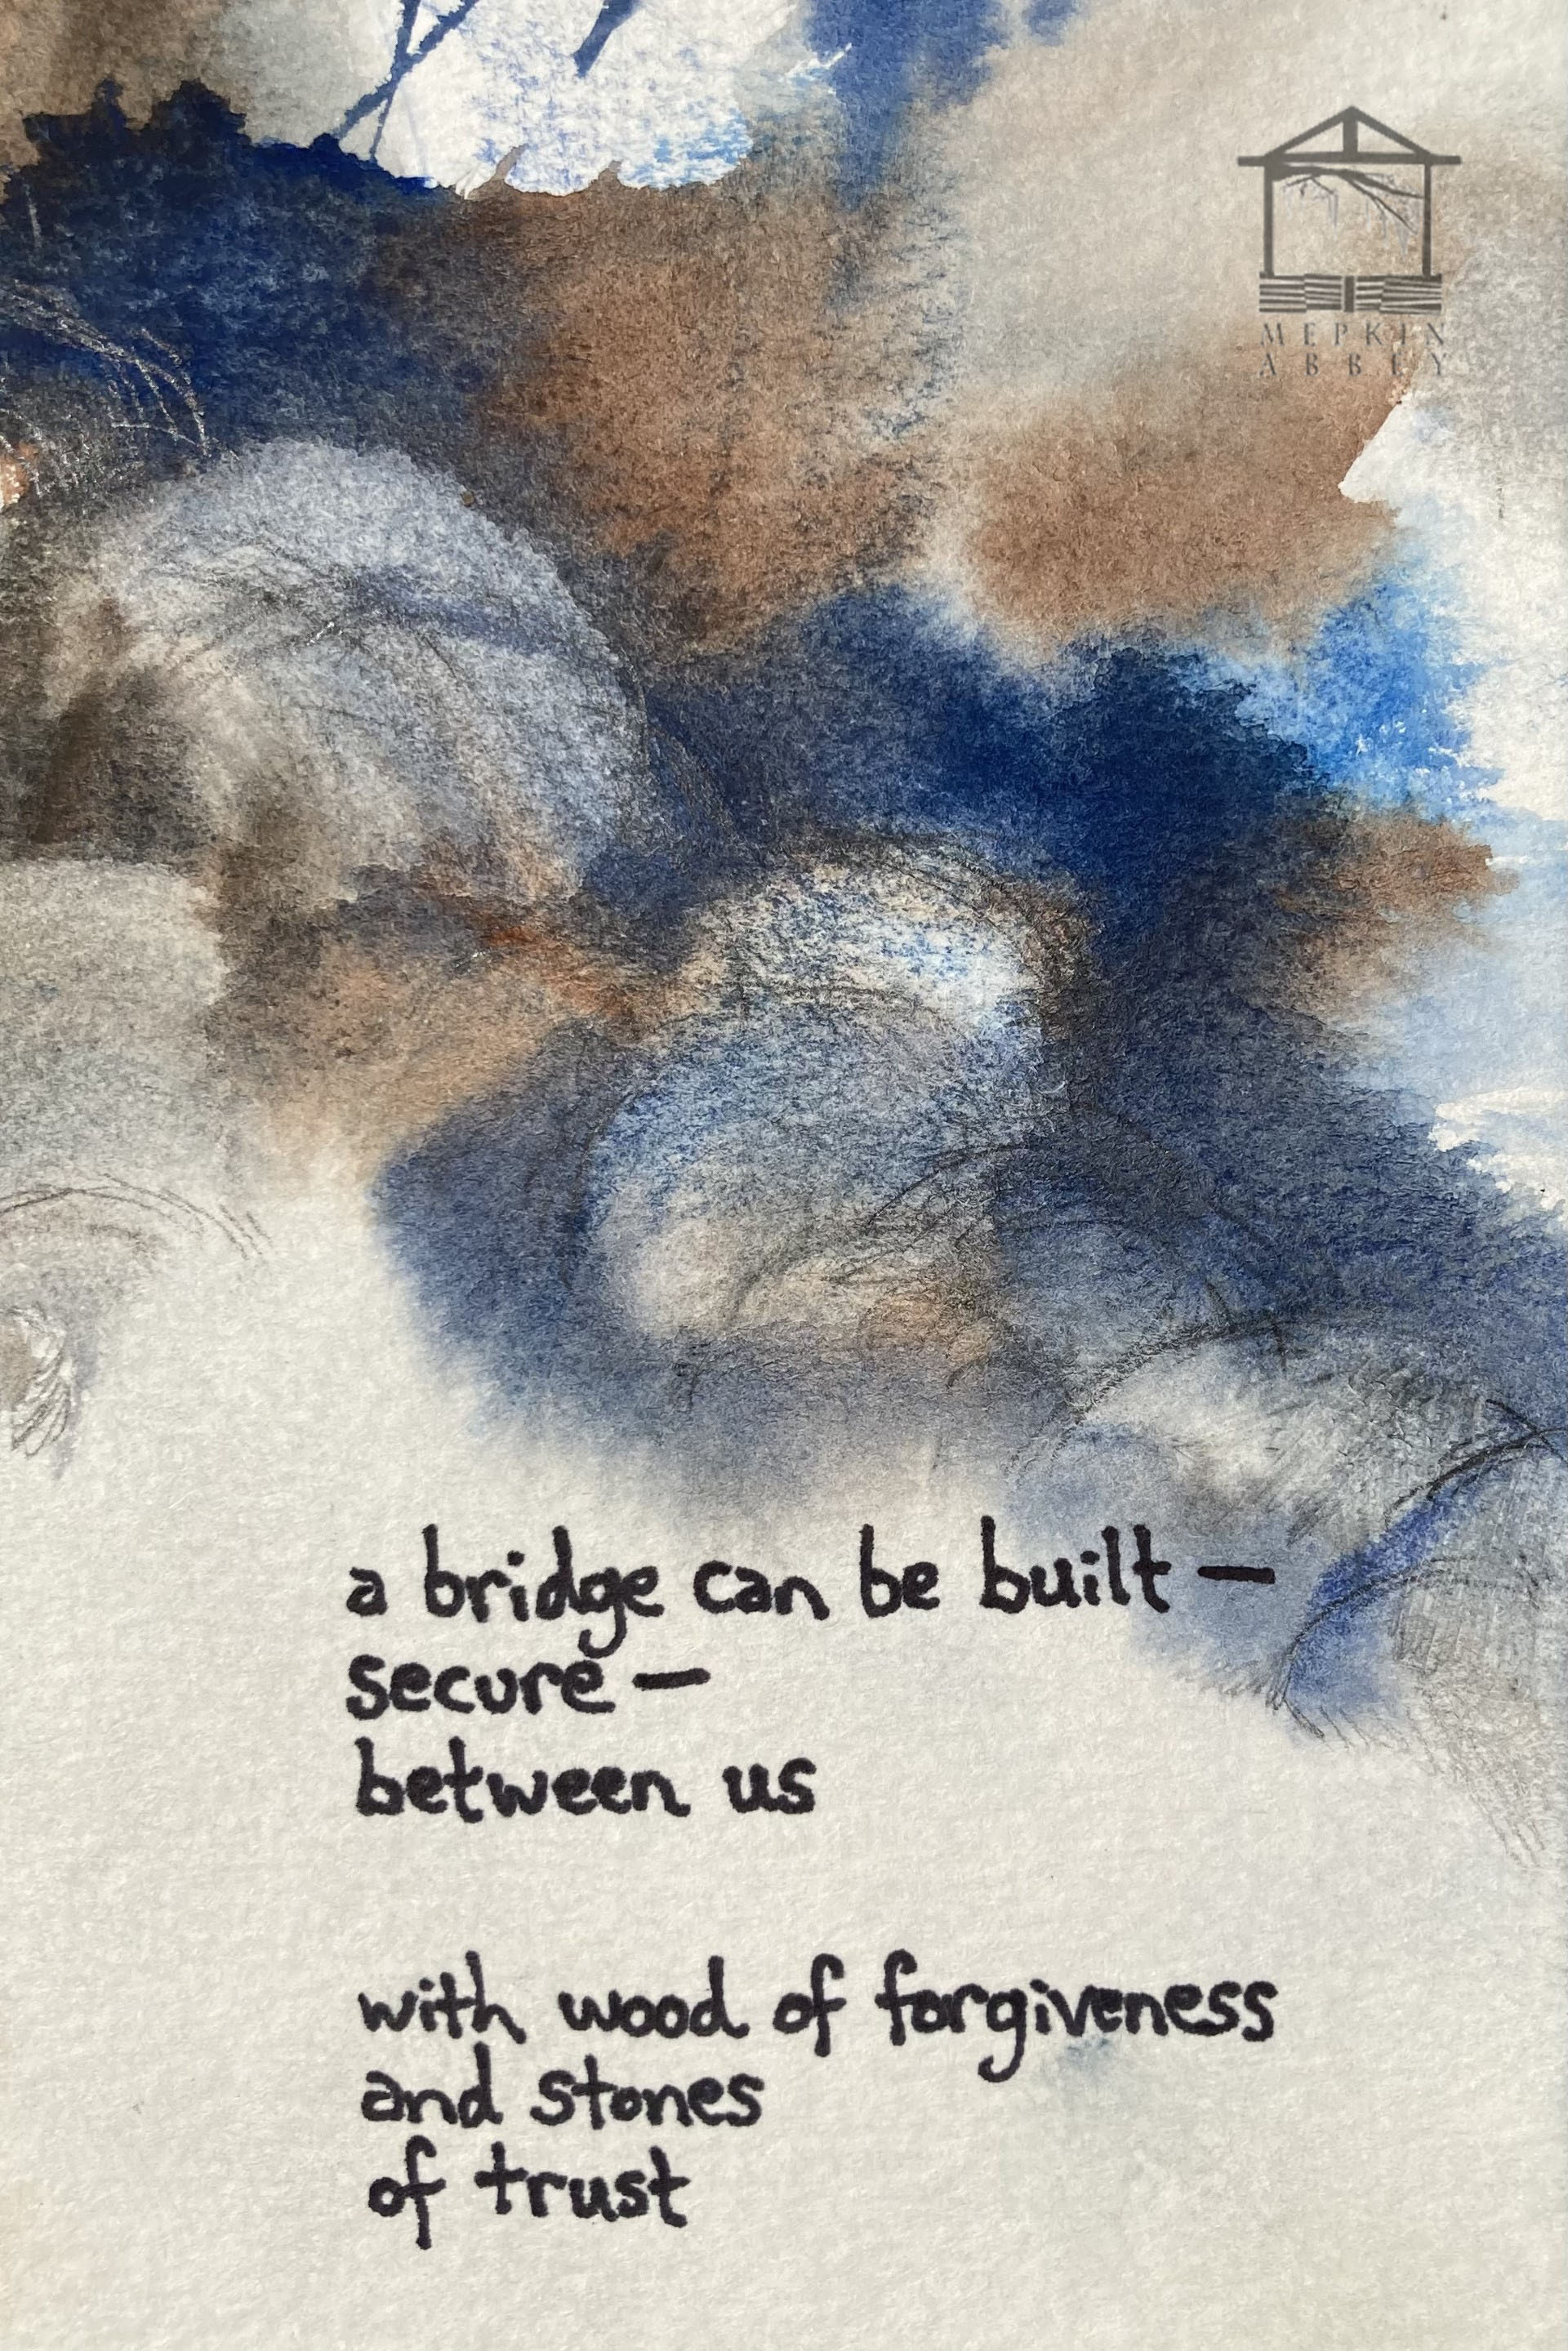 MEPKIN
ABBEY
a bridge can be built —
secure —
between us
with wood of forgiveness
and stones
of trust